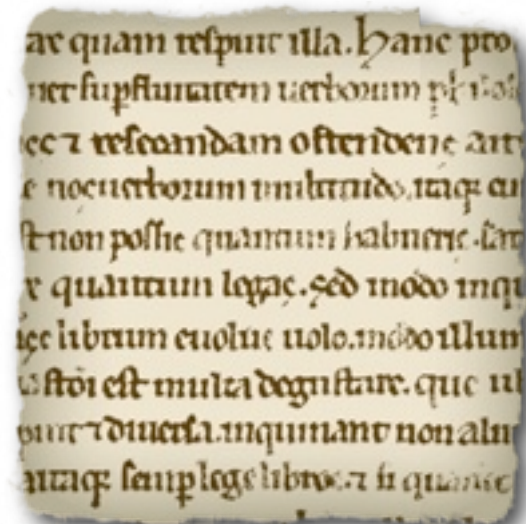 quam respuit illa. Hanc pro
supfluitatem uerborum
⁊ resecandam ostendere
uerborum multitudo. itaqꝫ cu
non posſis quantum habueris. sat
quantum legas. sed modo inqu
librum euolue uolo. modo illum
stōi est multa degustare. que u
sunt ⁊ diuersa. inquinant non alu
itaqꝫ semp lege libros. ⁊ si